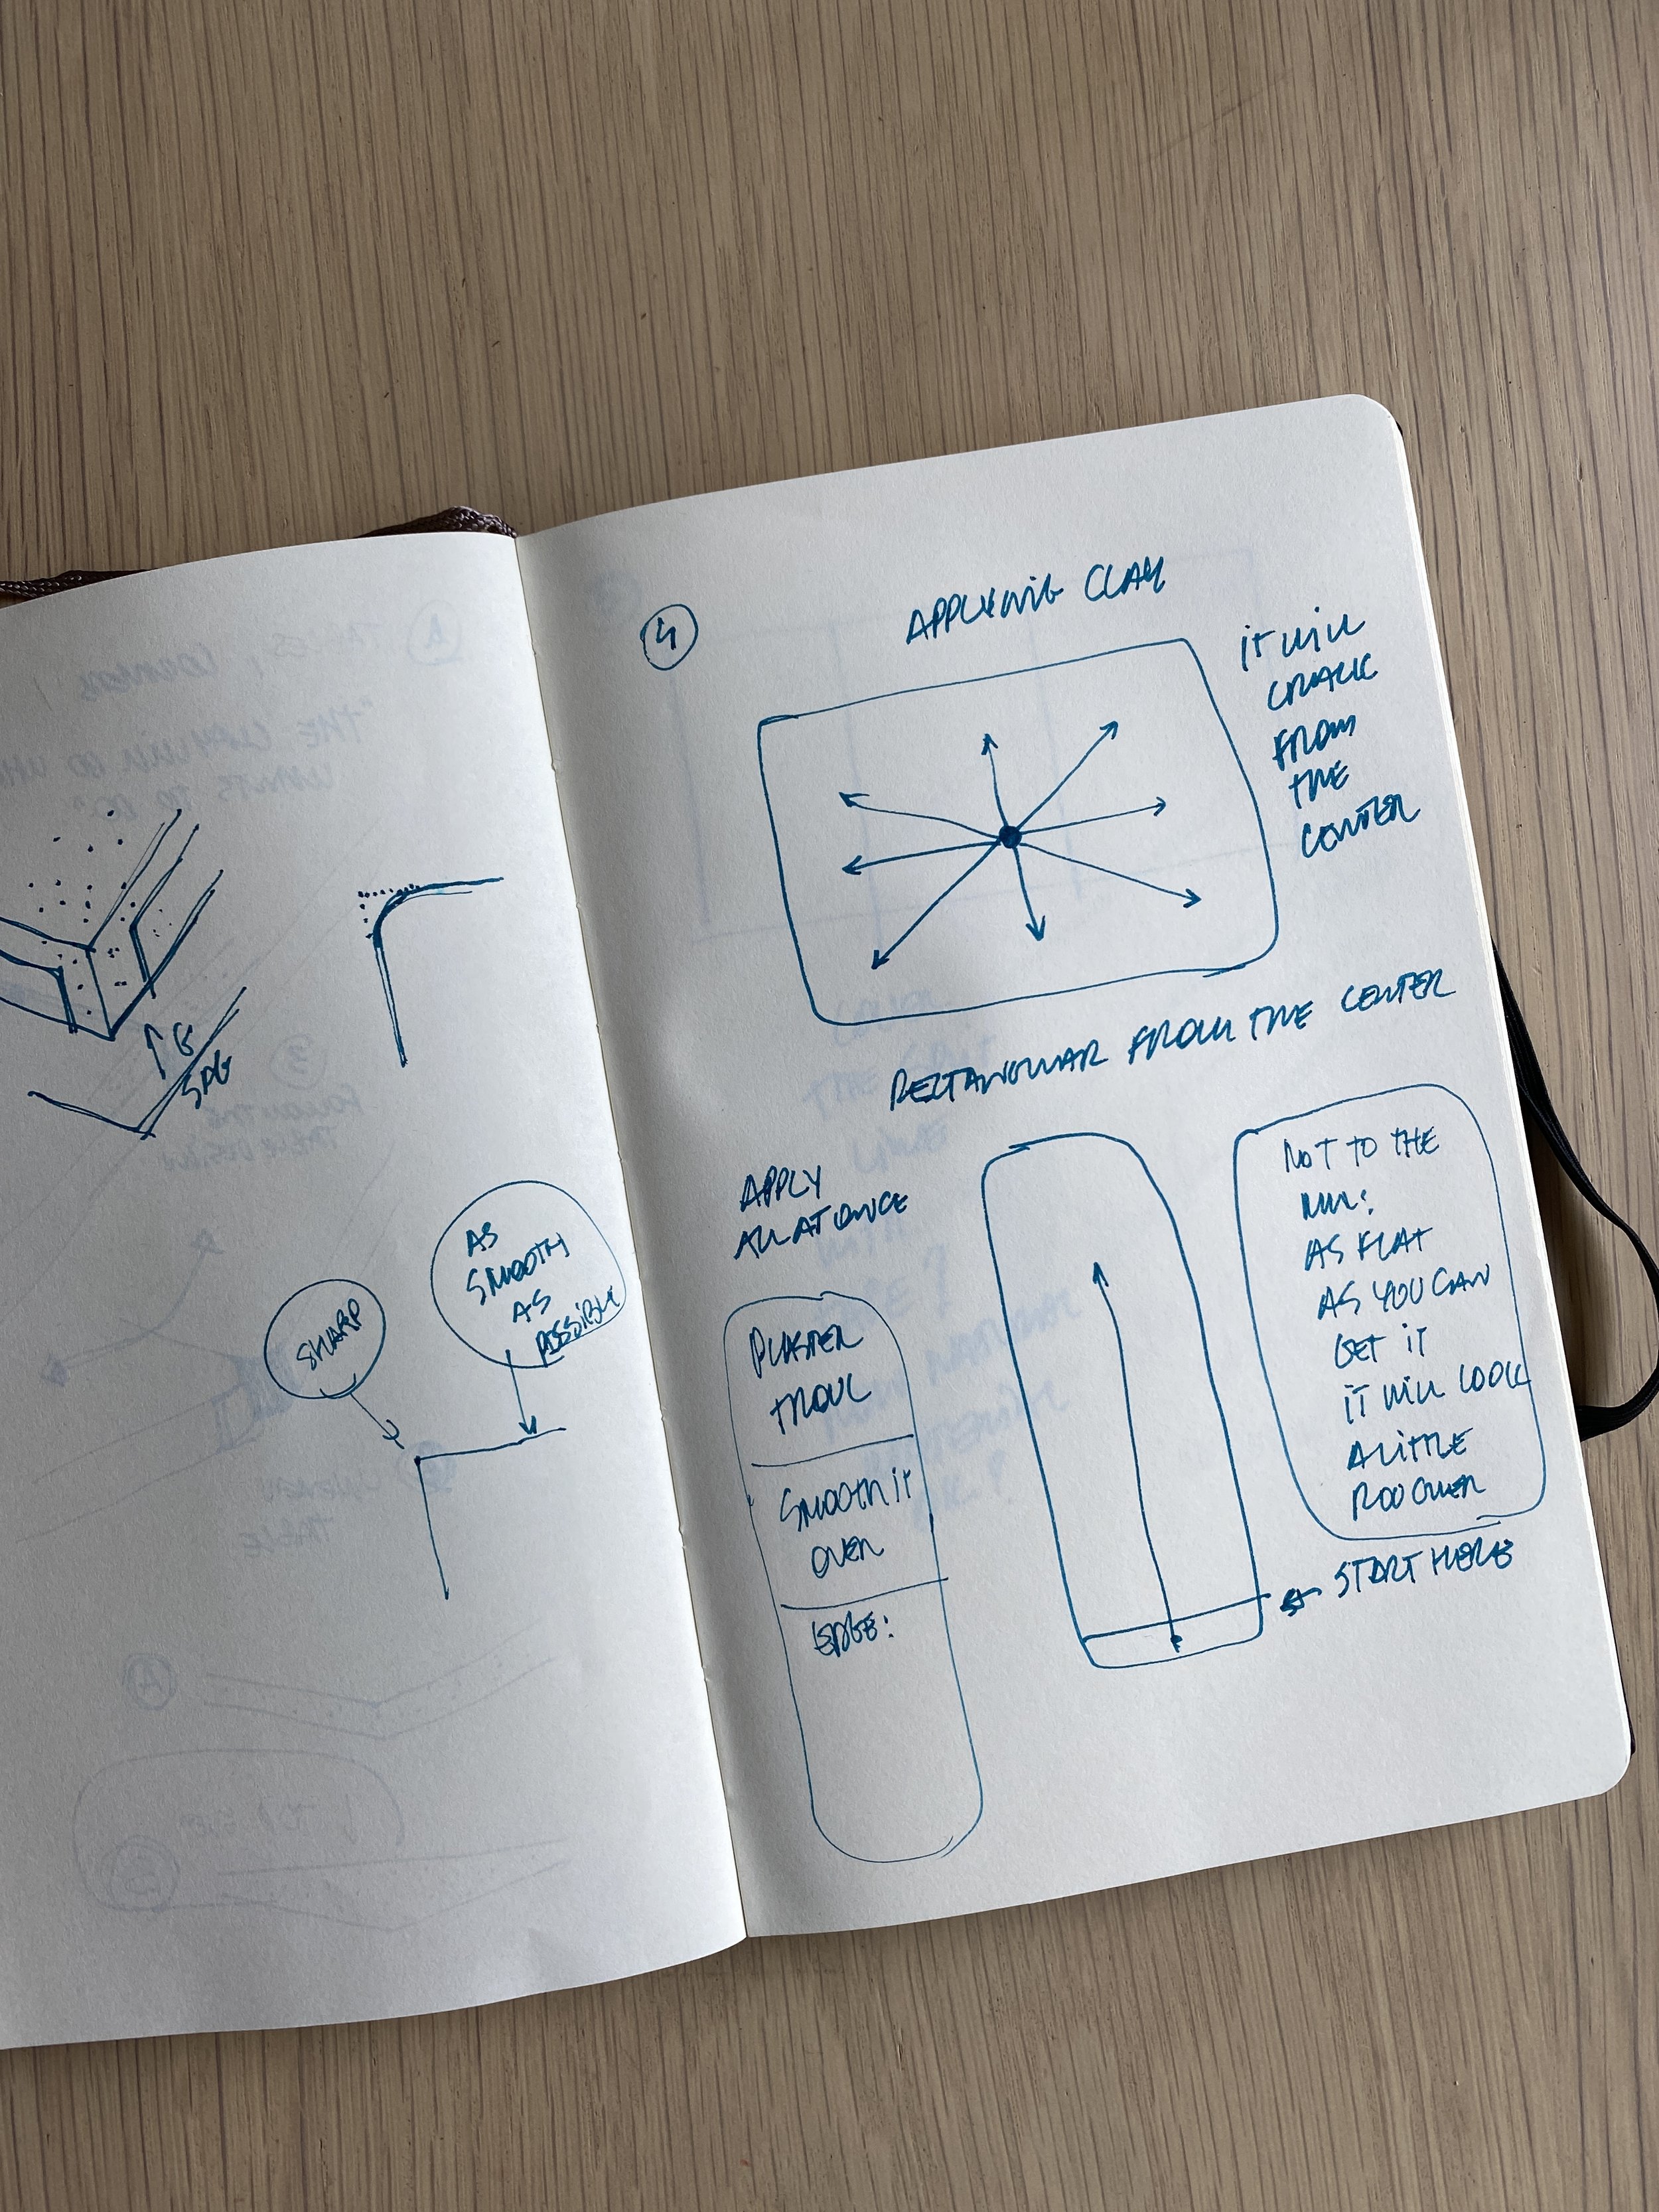 SHARP
AS
SMOOTH
AS
POSSIBLE
4
APPLYING CLAY
IT WILL
CRACK
FROM
THE
CENTER
RECTANGULAR FROM THE CENTER
APPLY
ALL AT ONCE
PLASTER
TROWL
SMOOTH IT
OVER
EDGE:
NOT TO THE
MM:
AS FLAT
AS YOU CAN
GET IT
IT WILL LOOK
A LITTLE
START HERE